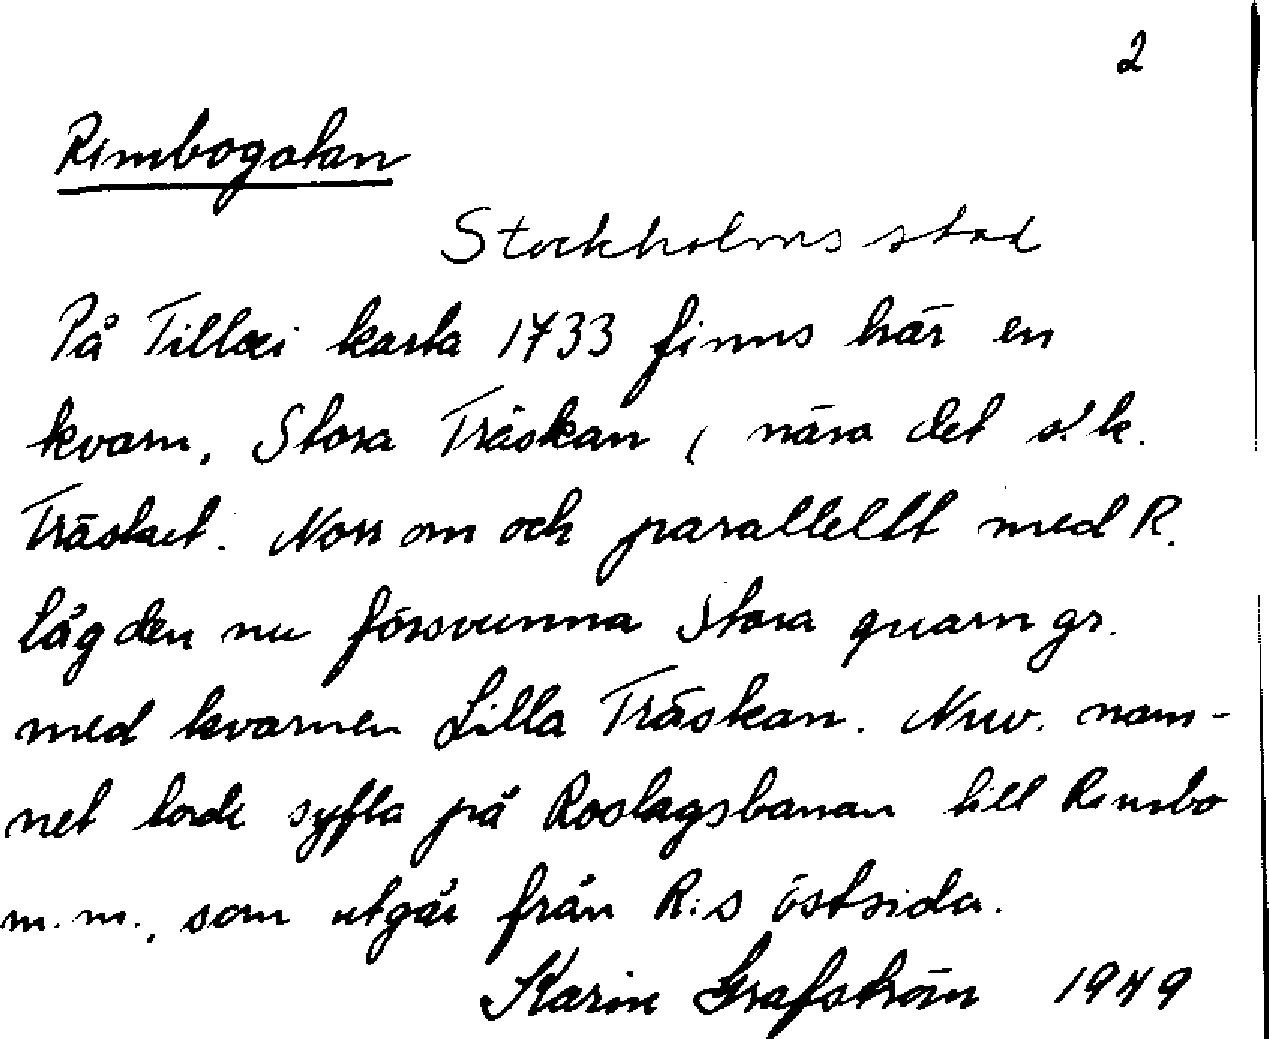 2
Rimbogatan
Stockholms stad
På Tillæi karta 1733 finns här en
kvarn, Stora Träskan, nära det s.k.
Träsket. Norr om och parallellt med R.
låg den nu försvunna Stora quarn gr.
med kvarnen Lilla Träskan. Nuv. nam-
net torde syfta på Roslagsbanan till Rimbo
m.m., som utgår från R:s östsida.
Karin Grafström 1949